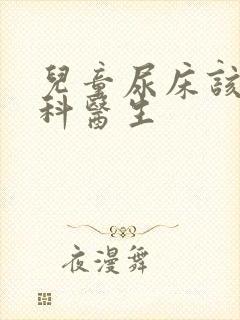 兒童尿床該
科醫生
夜漫舞